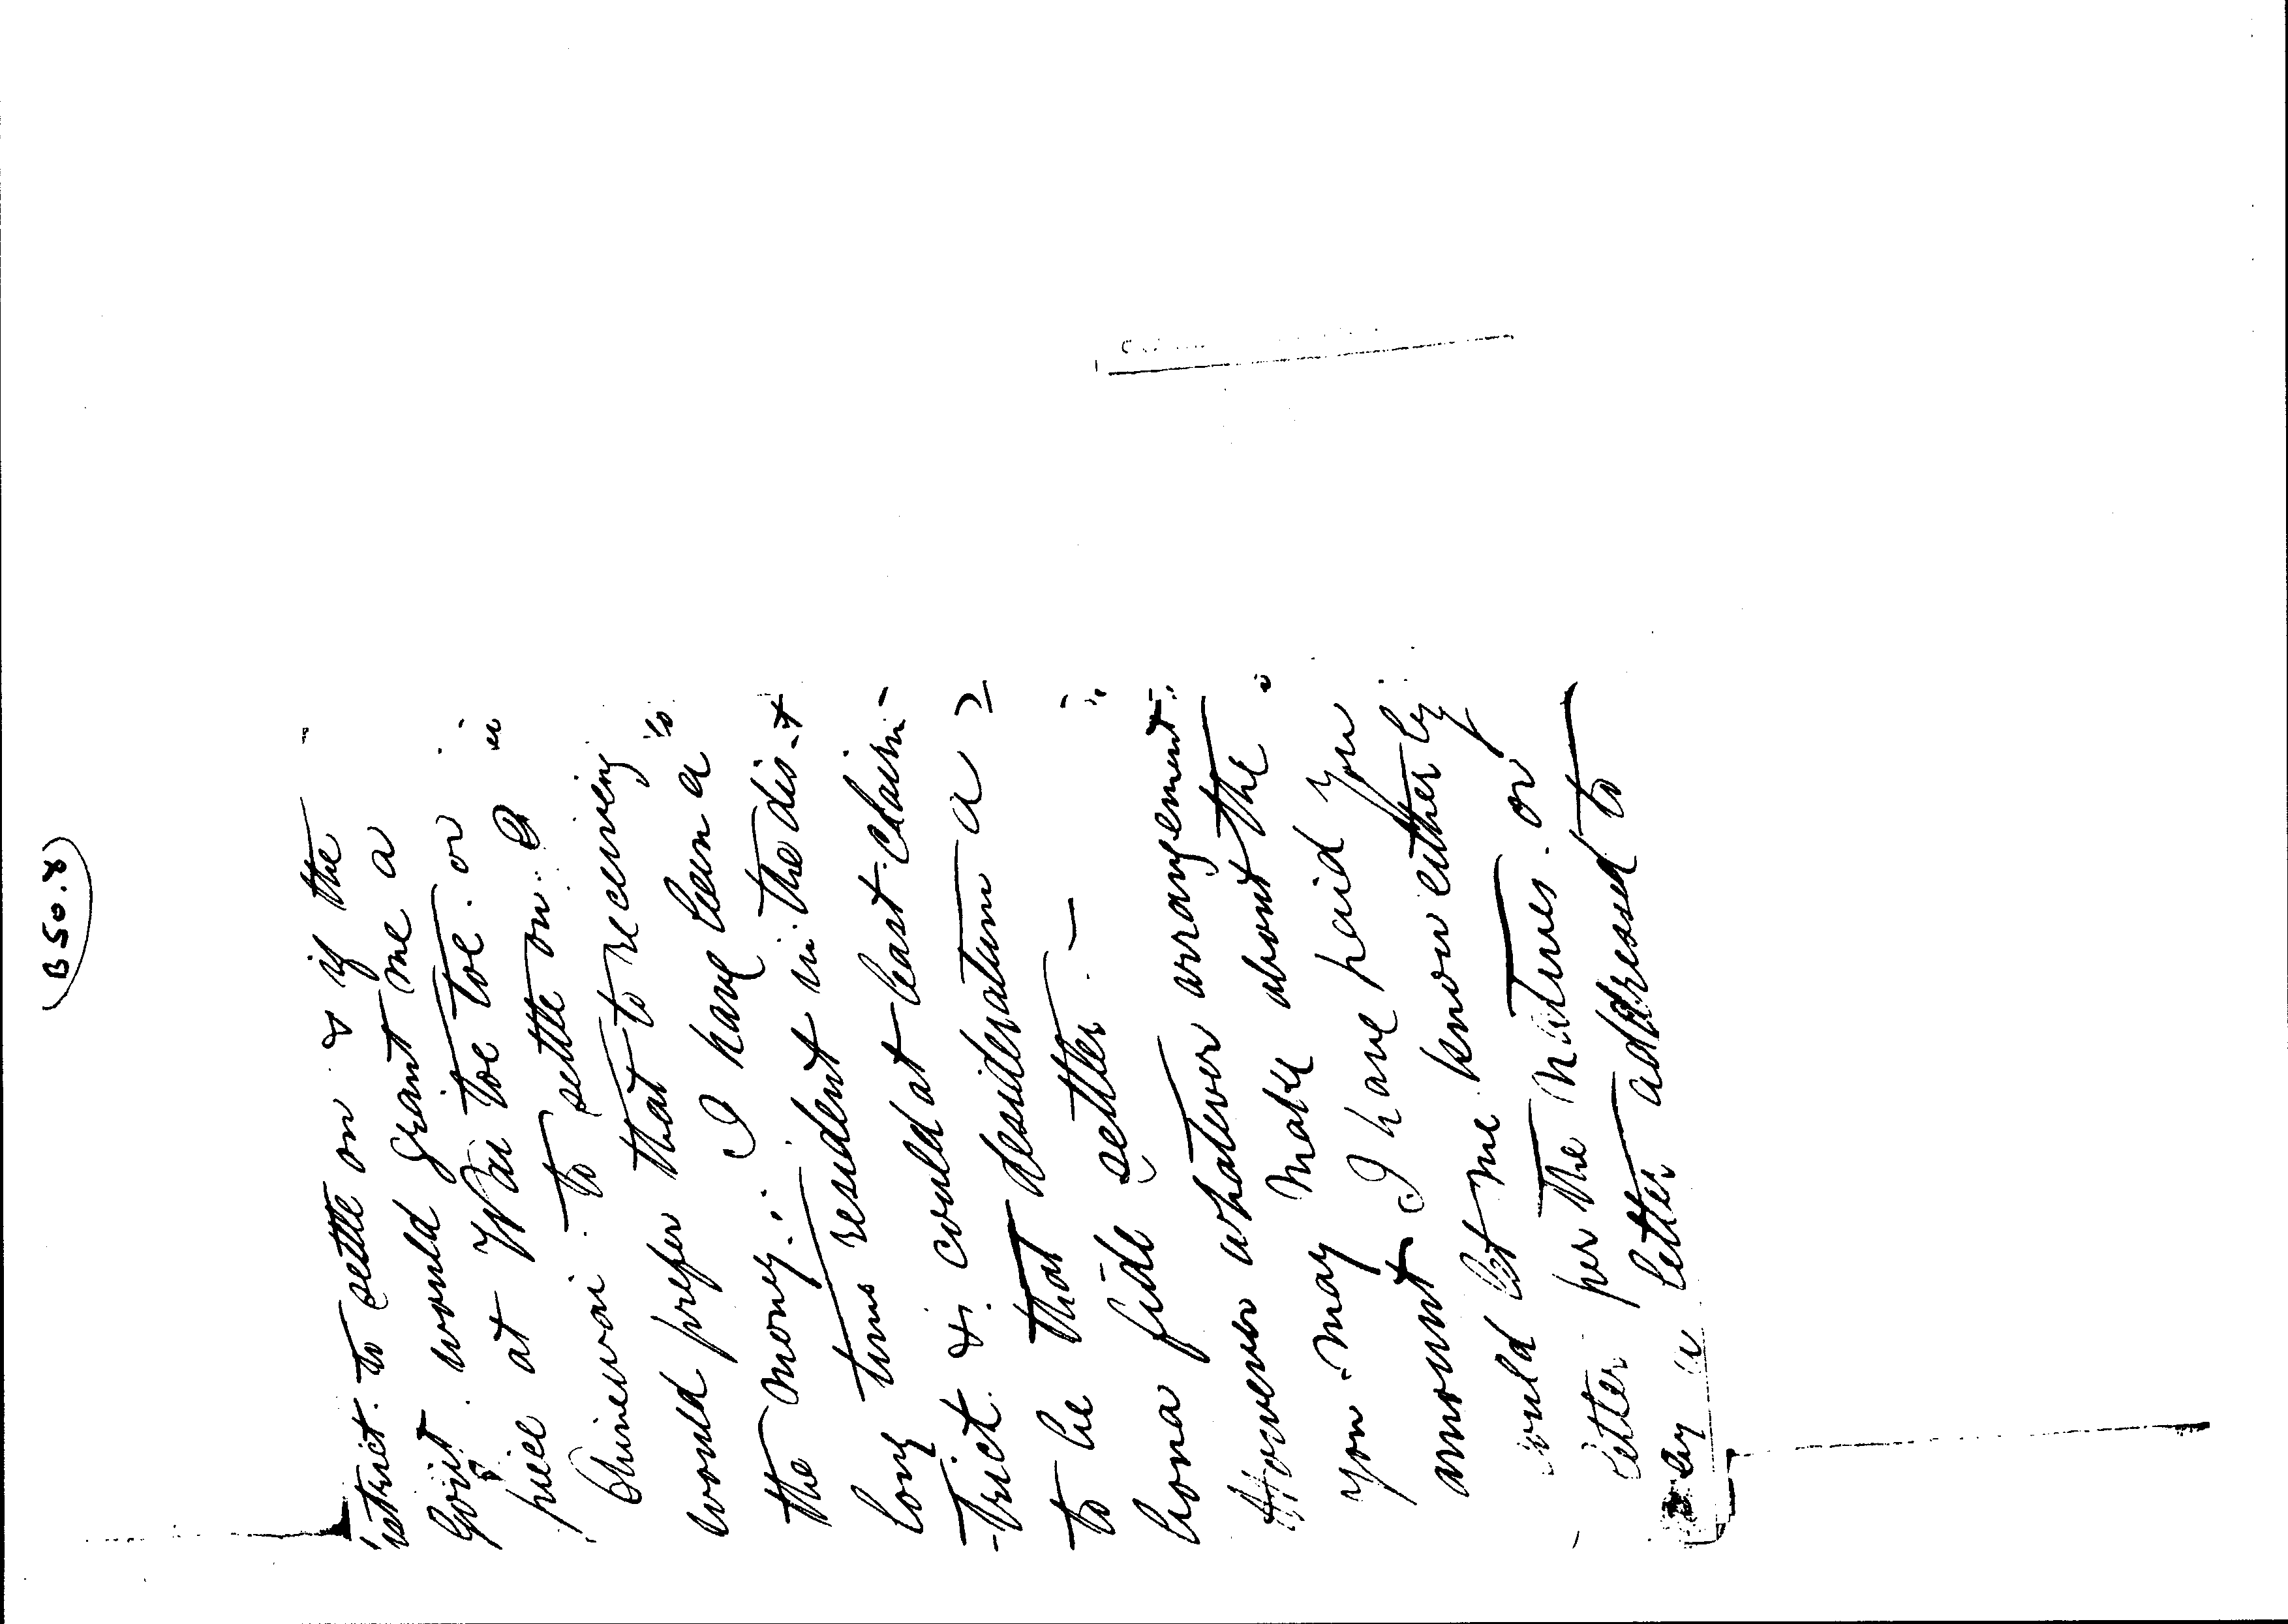 (B50.8)
istrict. to settle on & if the
Govt. would grant me a
piece at Wai toe toe. or
Ohinewai. to settle on. I
would prefer that to receiving
the money. I have been a
long time resident in the dis-
-trict. & could at least claim
to be that desideratum a
bona fide settler. —
However whatever arrangement
you may make about the
amount I have paid you
would let me know either by
letter per the Natives. or
by a letter addressed to